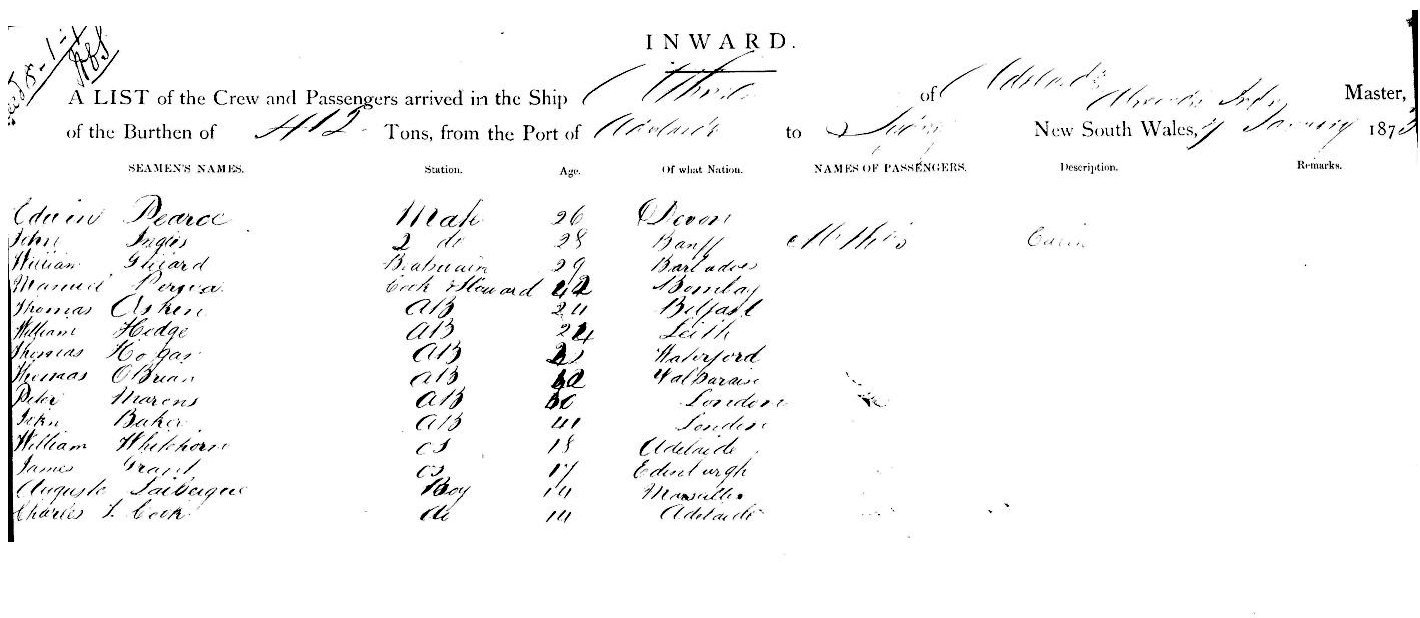 INWARD.
A LIST of the Crew and Passengers arrived in the Ship of Adelaide Master,
of the Burthen of 412 Tons, from the Port of Adelaide to Sydney New South Wales, January 187
SEAMEN'S NAMES. Station. Age. Of what Nation. NAMES OF PASSENGERS. Description. Remarks.
Edwin Pearce Mate 26 Devon
John Inglis 2 do 28 Banff Cabin
William 29 Barbados
Manuel Cook & Steward 42 Bombay
Thomas Asken AB 24 Belfast
William Hedge AB 24 Leith
Thomas Hogan AB Waterford
Thomas OBrian AB Valparaiso
Peter AB London
John Baker AB 41 London
William Whitehorn OS 18 Adelaide
James Grant OS 17 Edinburgh
Auguste Boy 14 Marseilles
Charles Cook do 14 Adelaide